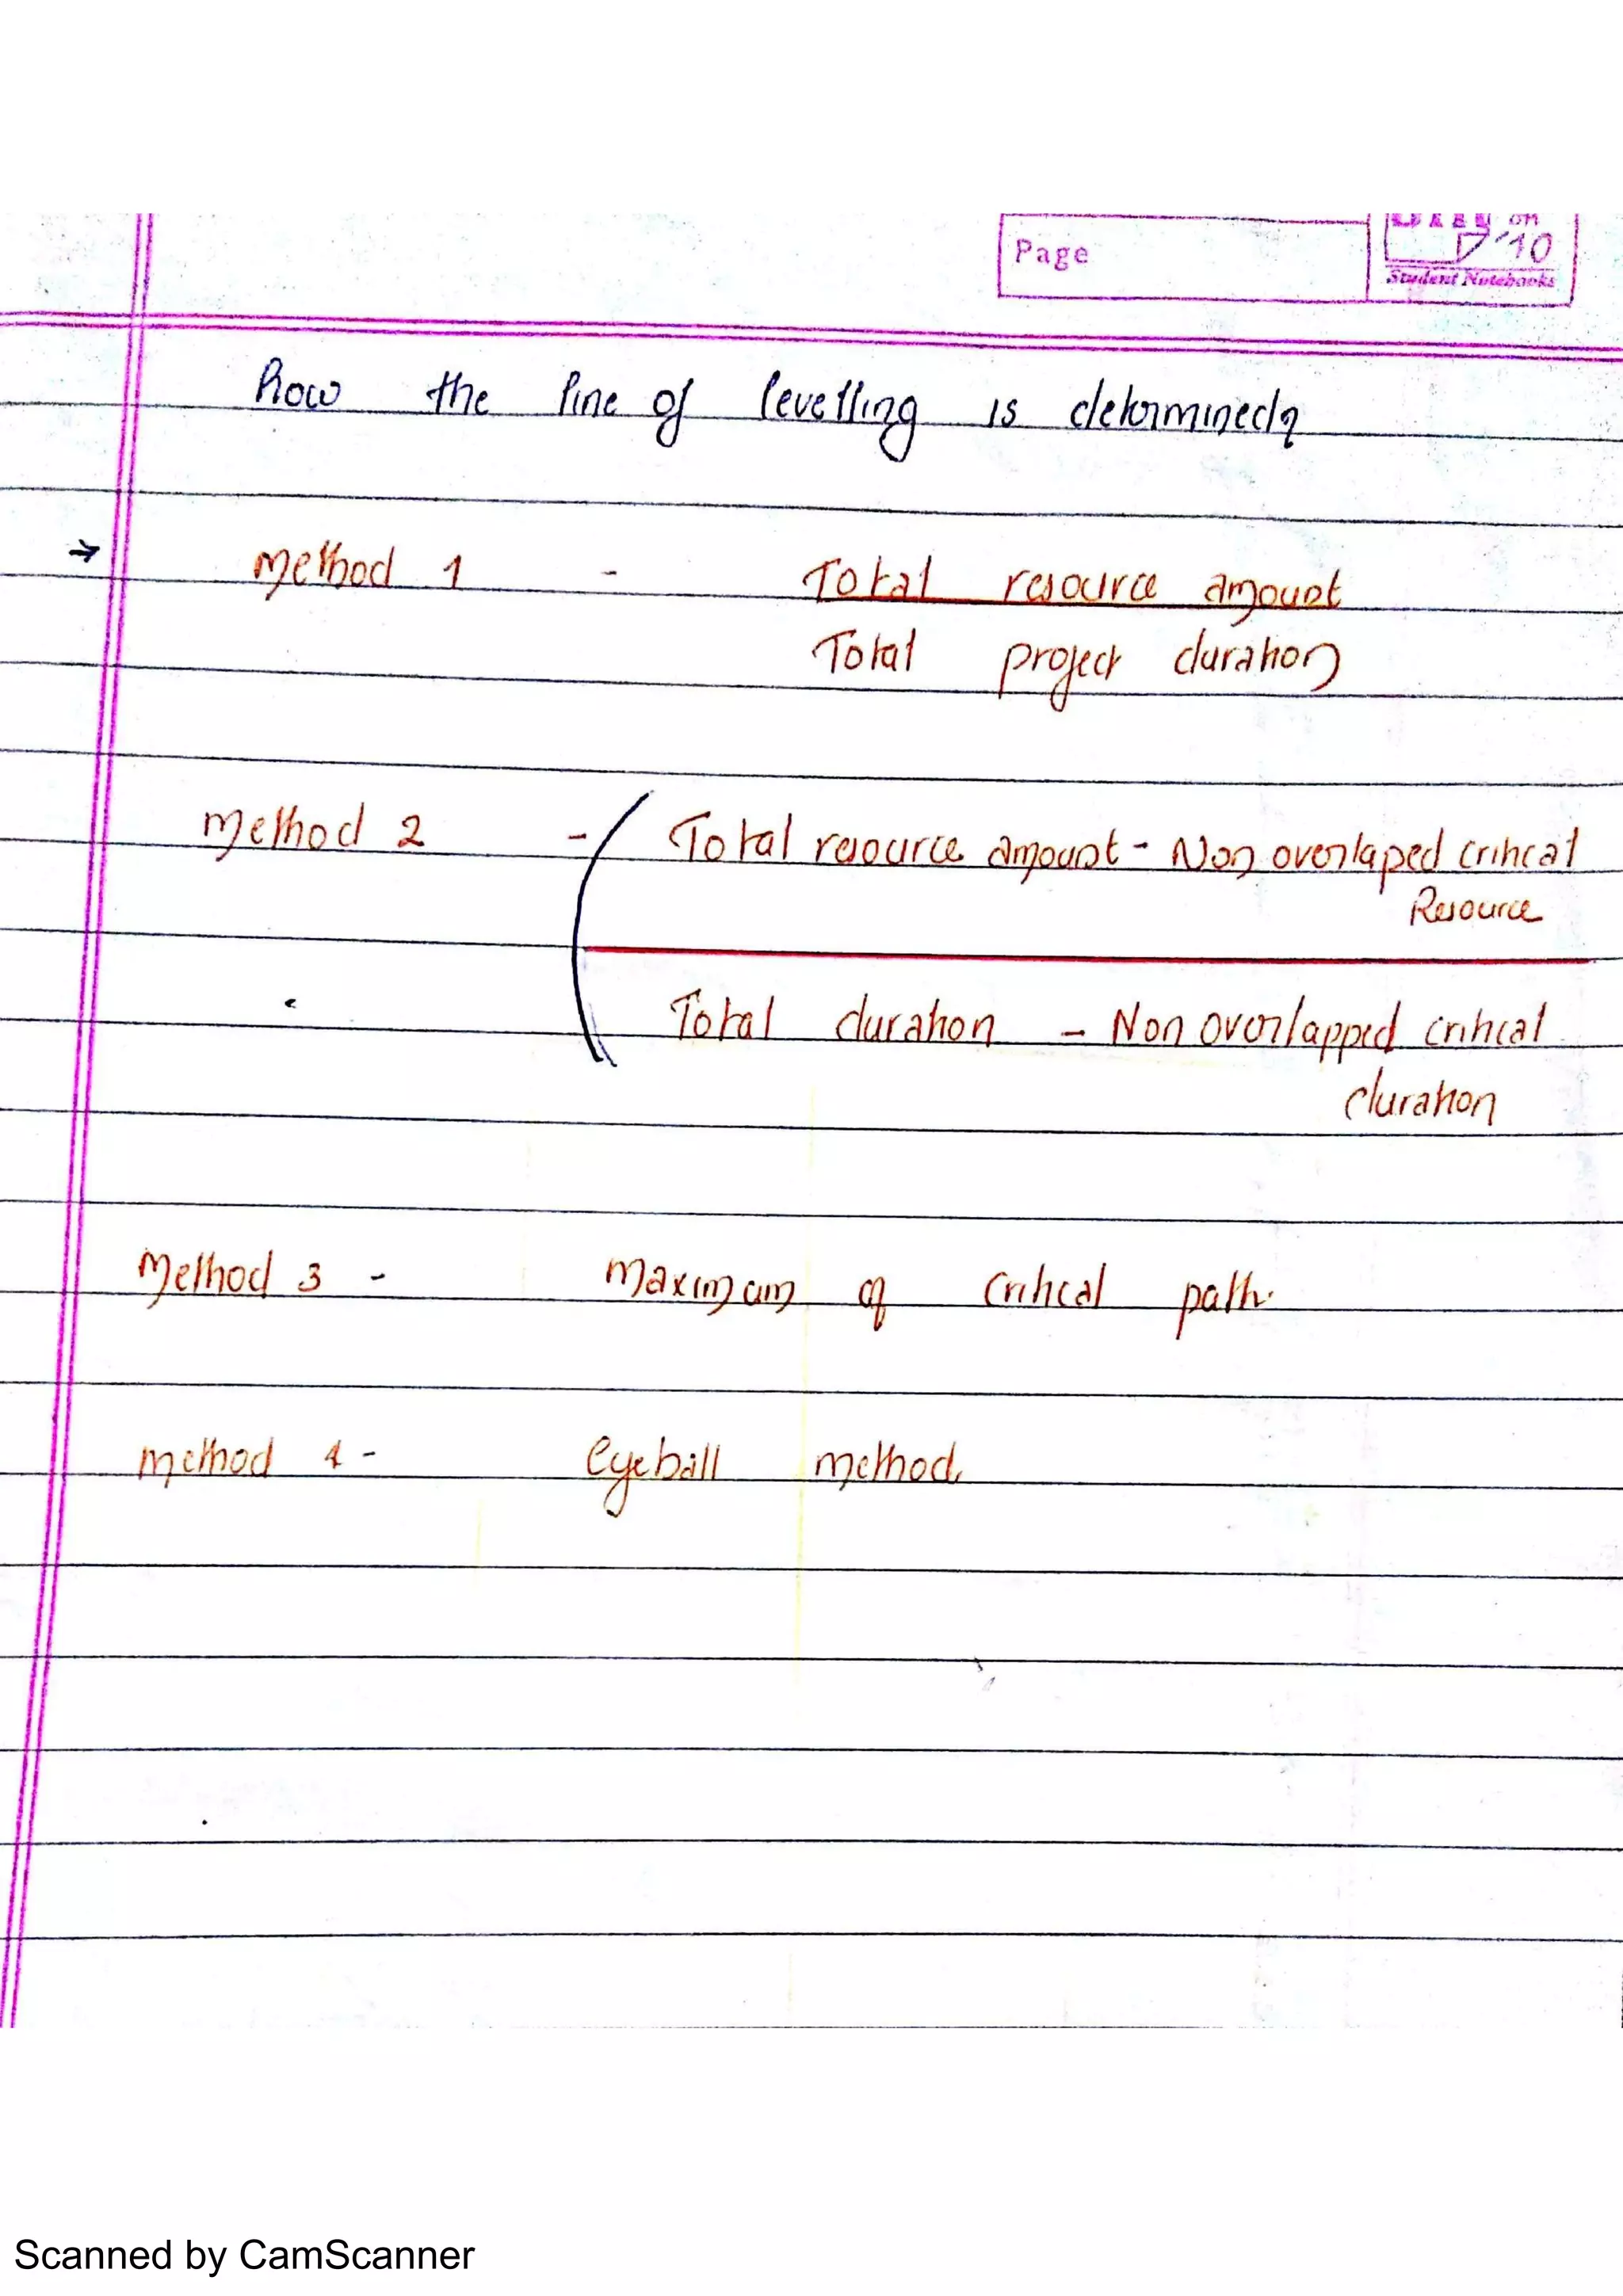 Page
on
10
Student Notebooks
How the line of levelling is determined?
→ Method 1 - Total resource amount
Total project duration
Method 2 - ( Total resource amount - Non overlaped critical
Resource
Total duration - Non overlapped critical
duration
Method 3 - Maximum of critical path.
Method 4 - eyeball method
Scanned by CamScanner